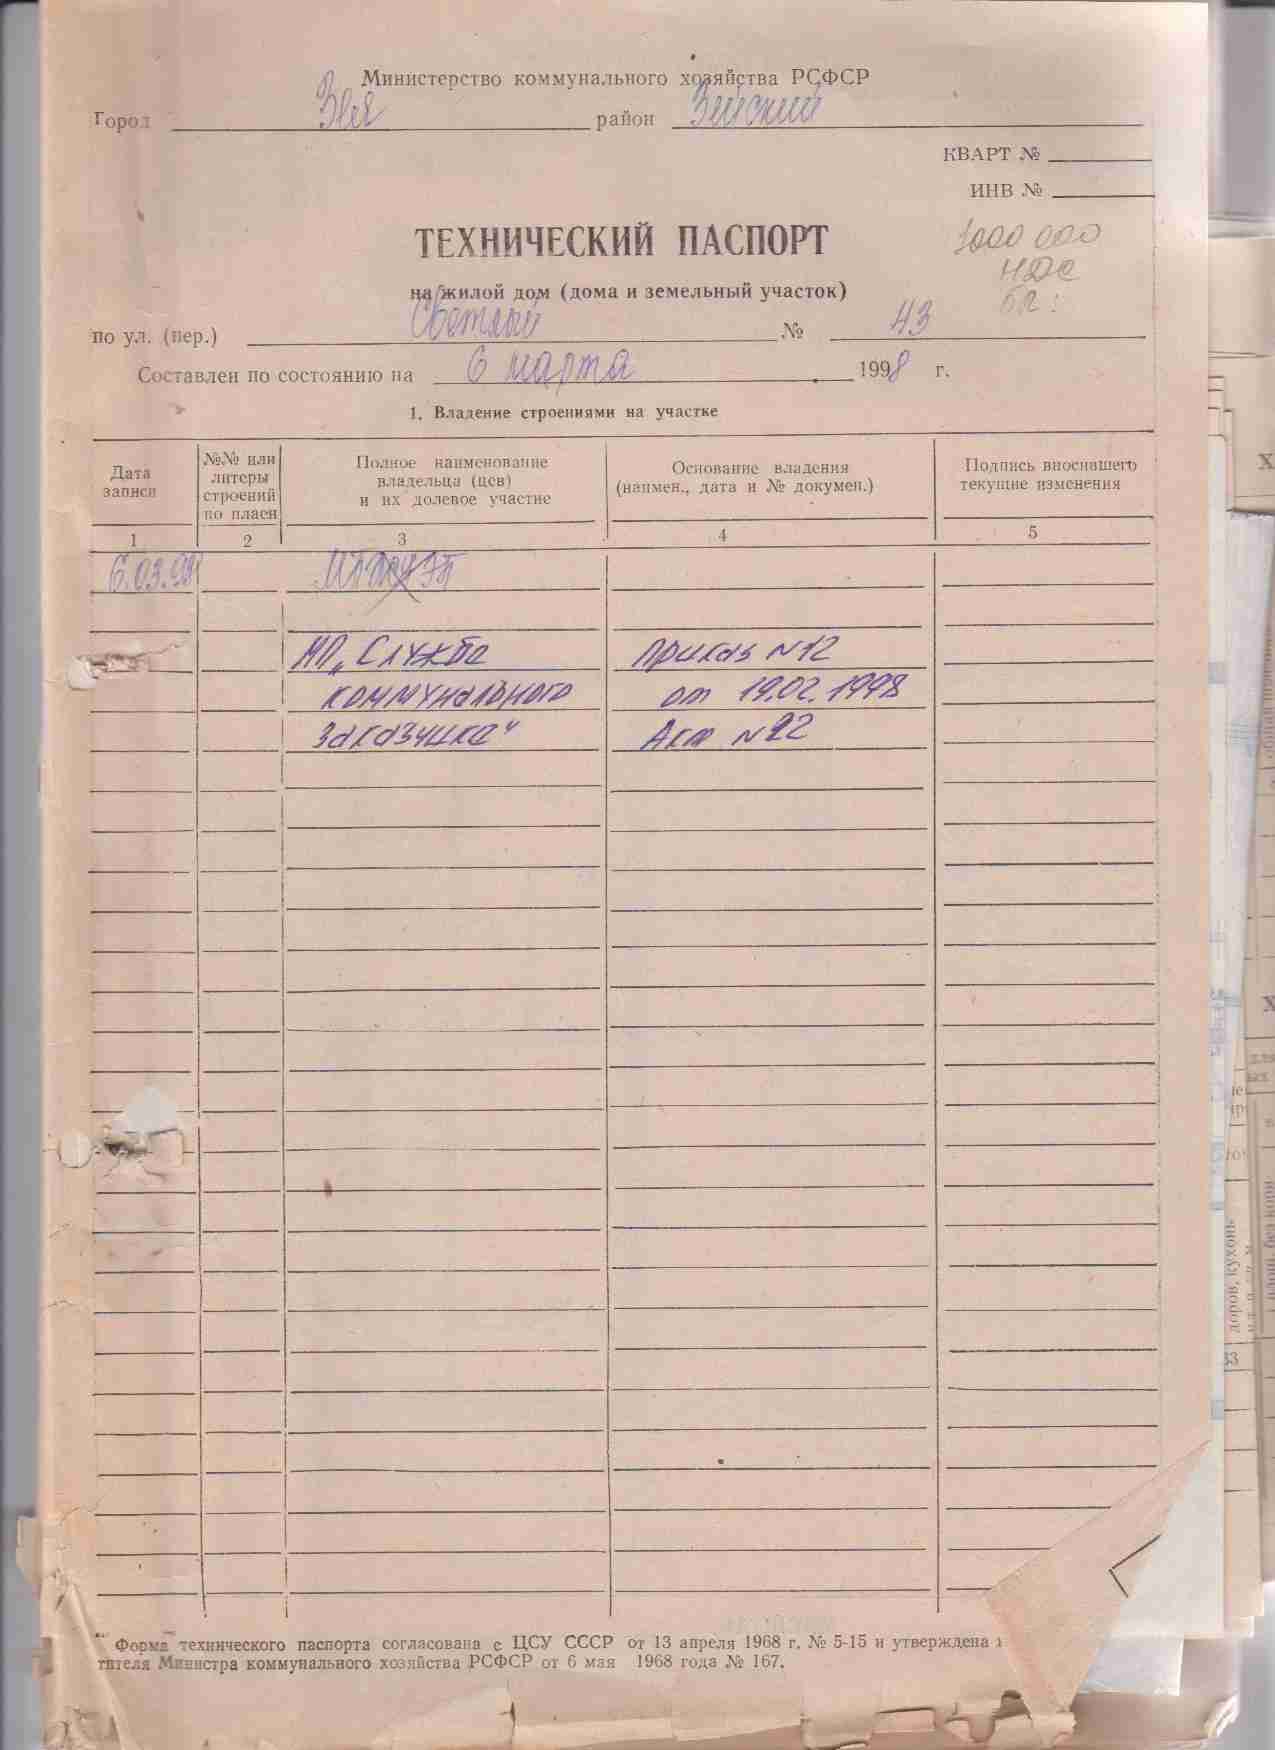 Министерство коммунального хозяйства РСФСР
Город Зея район Зейский
КВАРТ №
ИНВ №
ТЕХНИЧЕСКИЙ ПАСПОРТ
1000 000
НДС
на жилой дом (дома и земельный участок)
по ул. (пер.) Светлый № 43
Составлен по состоянию на 6 марта 1998 г.
1. Владение строениями на участке
Дата записи
№№ или литеры строений по плаен
Полное наименование владельца (цев) и их долевое участие
Основание владения (наимен., дата и № докумен.)
Подпись вносившего текущие изменения
1 2 3 4 5
6.03.98
МП „Служба Приказ №12
коммунального от 19.02.1998
заказчика" Акт №22
Форма технического паспорта согласована с ЦСУ СССР от 13 апреля 1968 г. № 5-15 и утверждена
тителя Министра коммунального хозяйства РСФСР от 6 мая 1968 года № 167.